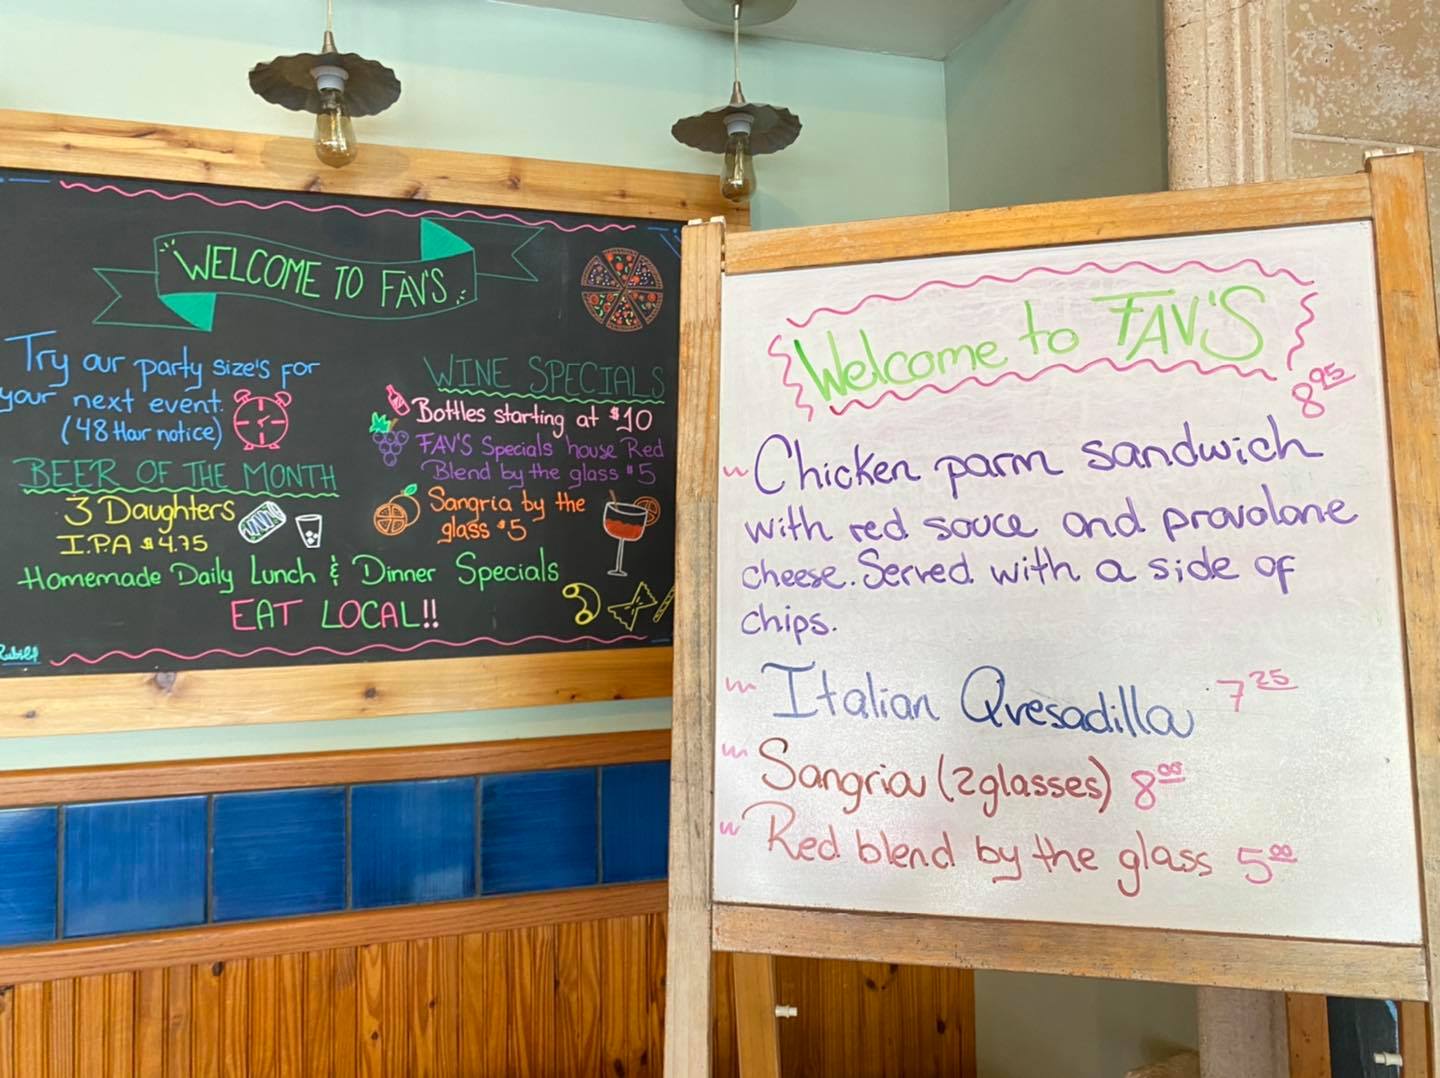 WELCOME TO FAV'S
Try our party size's for
your next event.
(48 Hour notice)
BEER OF THE MONTH
3 Daughters
I.P.A $4.75
WINE SPECIALS
Bottles starting at $10
FAV'S Specials house Red
Blend by the glass $5
Sangria by the
glass $5
Homemade Daily Lunch & Dinner Specials
EAT LOCAL!!
Welcome to FAV'S
8.95
Chicken parm sandwich
with red sauce and provolone
cheese. Served with a side of
chips.
Italian Quesadilla 7 25
Sangria (2glasses) 8 00
Red blend by the glass 5 00